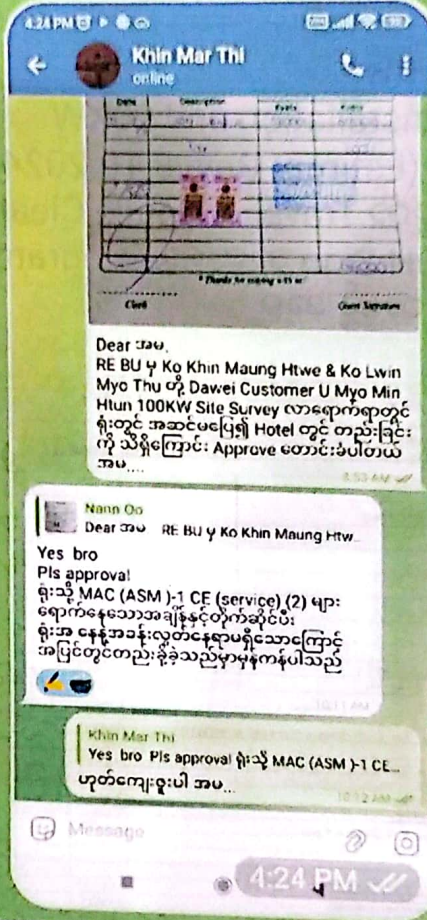 4:24 PM
Khin Mar Thi
online
Date Description
* Thanks for staying with us *
Clerk Guest Signature
Dear အမ,
RE BU မှ Ko Khin Maung Htwe & Ko Lwin
Myo Thu တို့ Dawei Customer U Myo Min
Htun 100KW Site Survey လာရောက်ရာတွင်
ရုံးတွင် အဆင်မပြေ၍ Hotel တွင် တည်းခြင်း
ကို သိရှိကြောင်း Approve တောင်းခံပါတယ်
အမ....
8:53 AM
Nann Oo
Dear အမ RE BU မှ Ko Khin Maung Htw...
Yes bro
Pls approval
ရုံးသို့ MAC (ASM )-1 CE (service) (2) များ
ရောက်နေသောအချိန်နှင့်တိုက်ဆိုင်ပီး
ရုံးအ နေနဲ့အခန်းလွတ်နေရာမရှိသောကြောင့်
အပြင်တွင်တည်းခို့ခဲ့သည်မှာမှန်ကန်ပါသည်
10:11 AM
Khin Mar Thi
Yes bro Pls approval ရုံးသို့ MAC (ASM )-1 CE...
ဟုတ်ကျေးဇူးပါ အမ...
10:12 AM
Message
4:24 PM